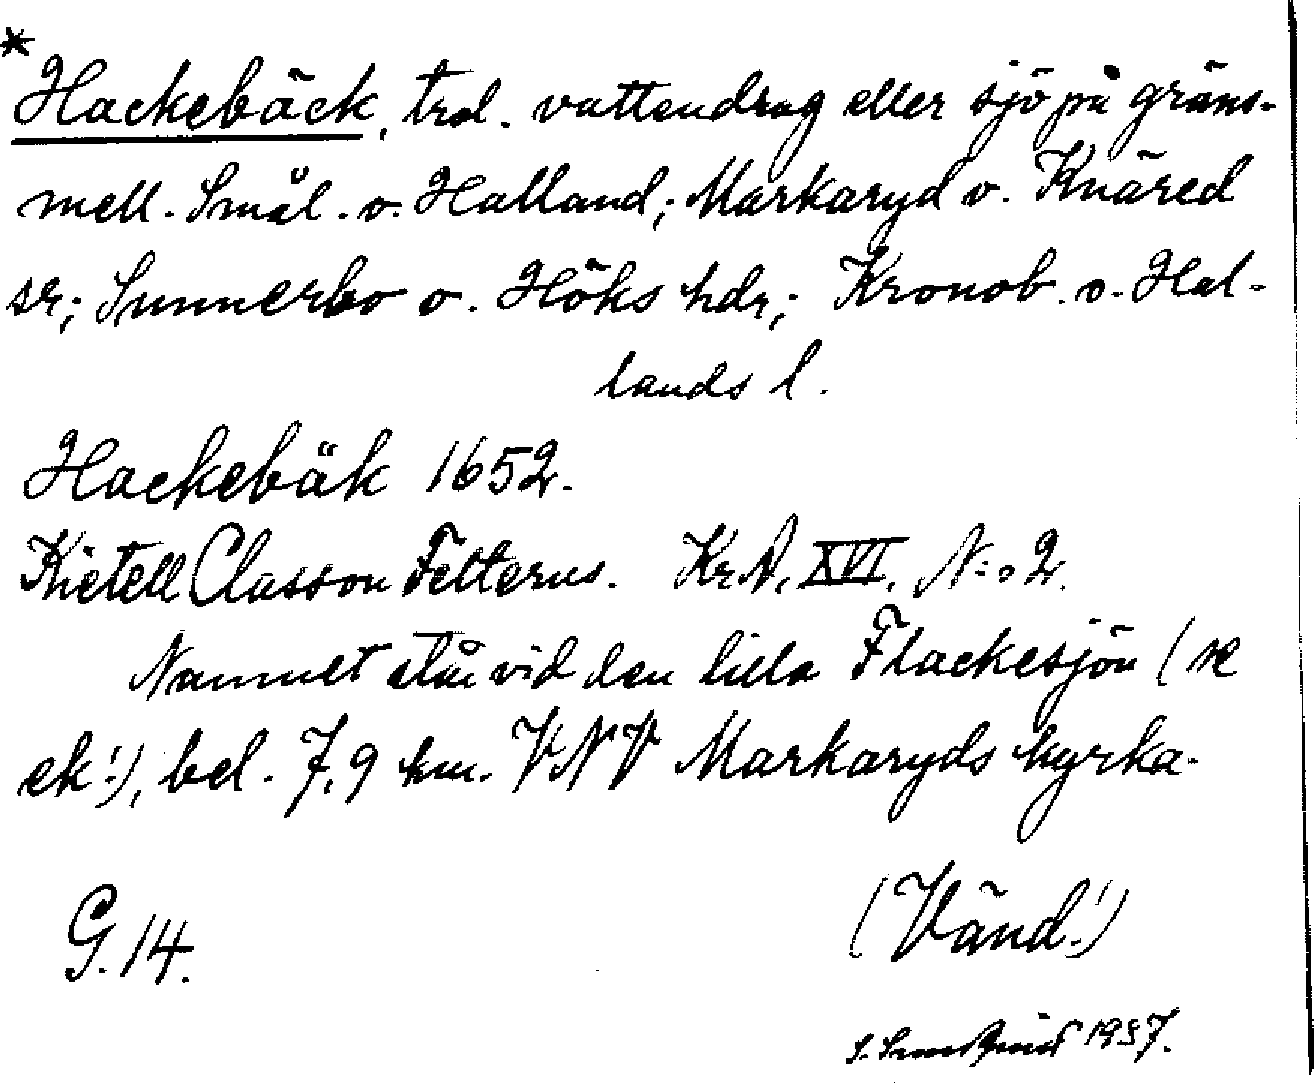 *
Hackebäck, trol. vattendrag eller sjö på gräns.
mell. Smål. o. Halland; Markaryd o. Knäred
sr; Sunnerbo o. Höks hdr; Kronob. o. Hal-
lands l.
Hackebäk 1652.
Kietell Classon Felterus. KrA, XVI, N:o 2.
Namnet står vid den lilla Flackesjön (se
ek!), bel. 7,9 km. VNV Markaryds kyrka.
(Vänd!)
G. 14.
1937.